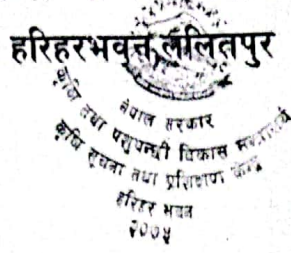 हरिहरभवन, ललितपुर
नेपाल सरकार
कृषि तथा पशुपन्छी विकास मन्त्रालय
कृषि सूचना तथा प्रशिक्षण केन्द्र
हरिहर भवन
२०७५